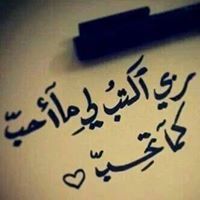 ربي أكتب لي ما أحب
كما تحب